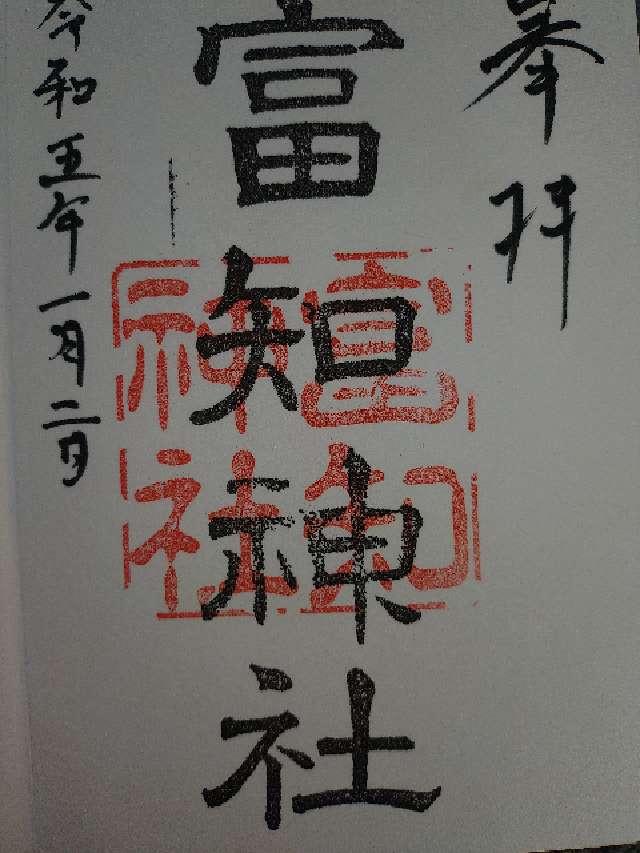 奉拝
富知神社
富知神社
令和五年一月二日